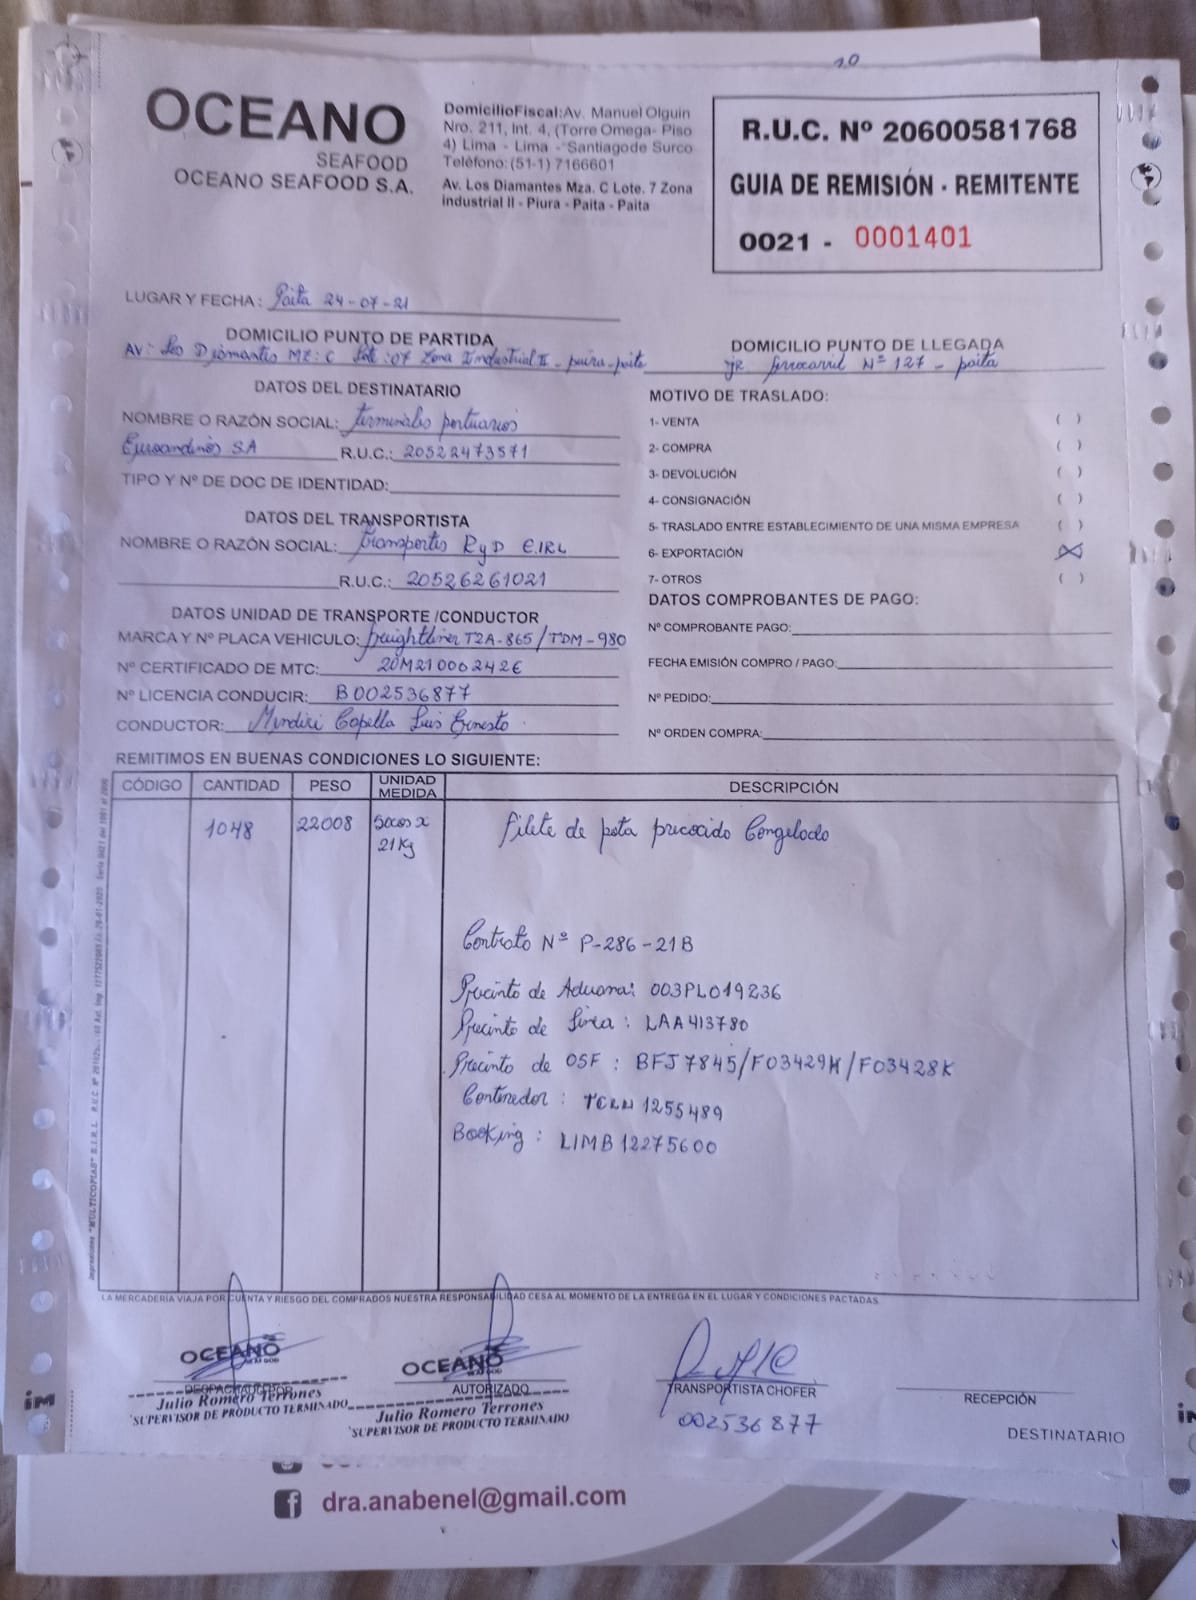 10
OCEANO
SEAFOOD
OCEANO SEAFOOD S.A.
DomicilioFiscal:Av. Manuel Olguin
Nro. 211, Int. 4, (Torre Omega- Piso
4) Lima - Lima - Santiagode Surco
Teléfono: (51-1) 7166601
Av. Los Diamantes Mza. C Lote. 7 Zona
industrial II - Piura - Paita - Paita
R.U.C. Nº 20600581768
GUIA DE REMISIÓN - REMITENTE
0021 - 0001401
LUGAR Y FECHA: Paita 24-07-21
DOMICILIO PUNTO DE PARTIDA
AV: Los Diamantes MZ: C Lote: 07 Zona Industrial II - piura - paita
DOMICILIO PUNTO DE LLEGADA
JR ferrocarril Nº 127 - paita
DATOS DEL DESTINATARIO
NOMBRE O RAZÓN SOCIAL: terminales portuarios
Euroandinos SA R.U.C.: 20522473571
TIPO Y Nº DE DOC DE IDENTIDAD:
DATOS DEL TRANSPORTISTA
NOMBRE O RAZÓN SOCIAL: transportes RyD E.IRL
R.U.C.: 20526261021
DATOS UNIDAD DE TRANSPORTE /CONDUCTOR
MARCA Y Nº PLACA VEHICULO: freightliner T2A-865/TDM-980
Nº CERTIFICADO DE MTC: 20M21000242E
Nº LICENCIA CONDUCIR: B002536877
CONDUCTOR: Luis Ernesto
MOTIVO DE TRASLADO:
1- VENTA ( )
2- COMPRA ( )
3- DEVOLUCIÓN ( )
4- CONSIGNACIÓN ( )
5- TRASLADO ENTRE ESTABLECIMIENTO DE UNA MISMA EMPRESA ( )
6- EXPORTACIÓN (X)
7- OTROS ( )
DATOS COMPROBANTES DE PAGO:
Nº COMPROBANTE PAGO:
FECHA EMISIÓN COMPRO / PAGO:
Nº PEDIDO:
Nº ORDEN COMPRA:
REMITIMOS EN BUENAS CONDICIONES LO SIGUIENTE:
CÓDIGO CANTIDAD PESO UNIDAD MEDIDA DESCRIPCIÓN
1048 22008 Sacos x 21Kg filete de pota precocido Congelado
Contrato Nº P-286-21B
Precinto de Aduana: 003PL019236
Precinto de Linea: LAA413780
Precinto de OSF: BFJ7845/F03429K/F03428K
Contenedor: 1255489
Booking: LIMB12275600
LA MERCADERÍA VIAJA POR CUENTA Y RIESGO DEL COMPRADOS NUESTRA RESPONSABILIDAD CESA AL MOMENTO DE LA ENTREGA EN EL LUGAR Y CONDICIONES PACTADAS
OCEANO
Julio Romero Terrones
SUPERVISOR DE PRODUCTO TERMINADO
OCEANO
AUTORIZADO
Julio Romero Terrones
SUPERVISOR DE PRODUCTO TERMINADO
TRANSPORTISTA CHOFER
002536877
RECEPCIÓN
DESTINATARIO
dra.anabenel@gmail.com